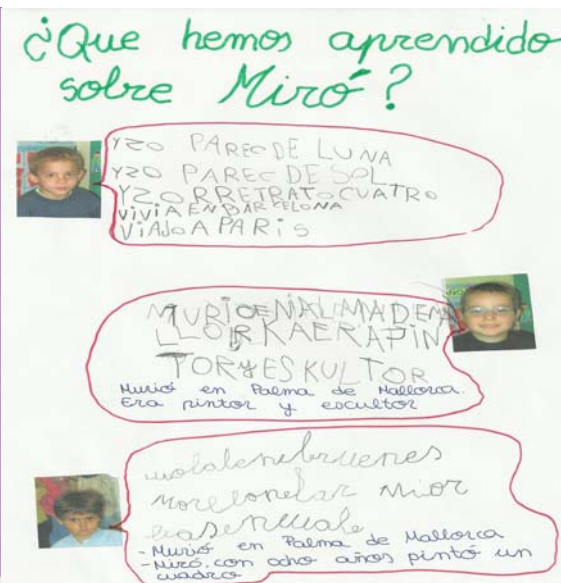 ¿Que hemos aprendido
sobre Miró?
YZO PAREC DE LUNA
YZO PAREC DE SOL
YZO RRETRATO CUATRO
ViViA EN BARCELONA
ViAJO A PARiS
MURIOENALMADEMA
LLORKAERAPIN
TORYESKULTOR
Murió en Palma de Mallorca.
Era pintor y escultor
- Murió en Palma de Mallorca
- Miró, con ocho años pintó un
cuadro